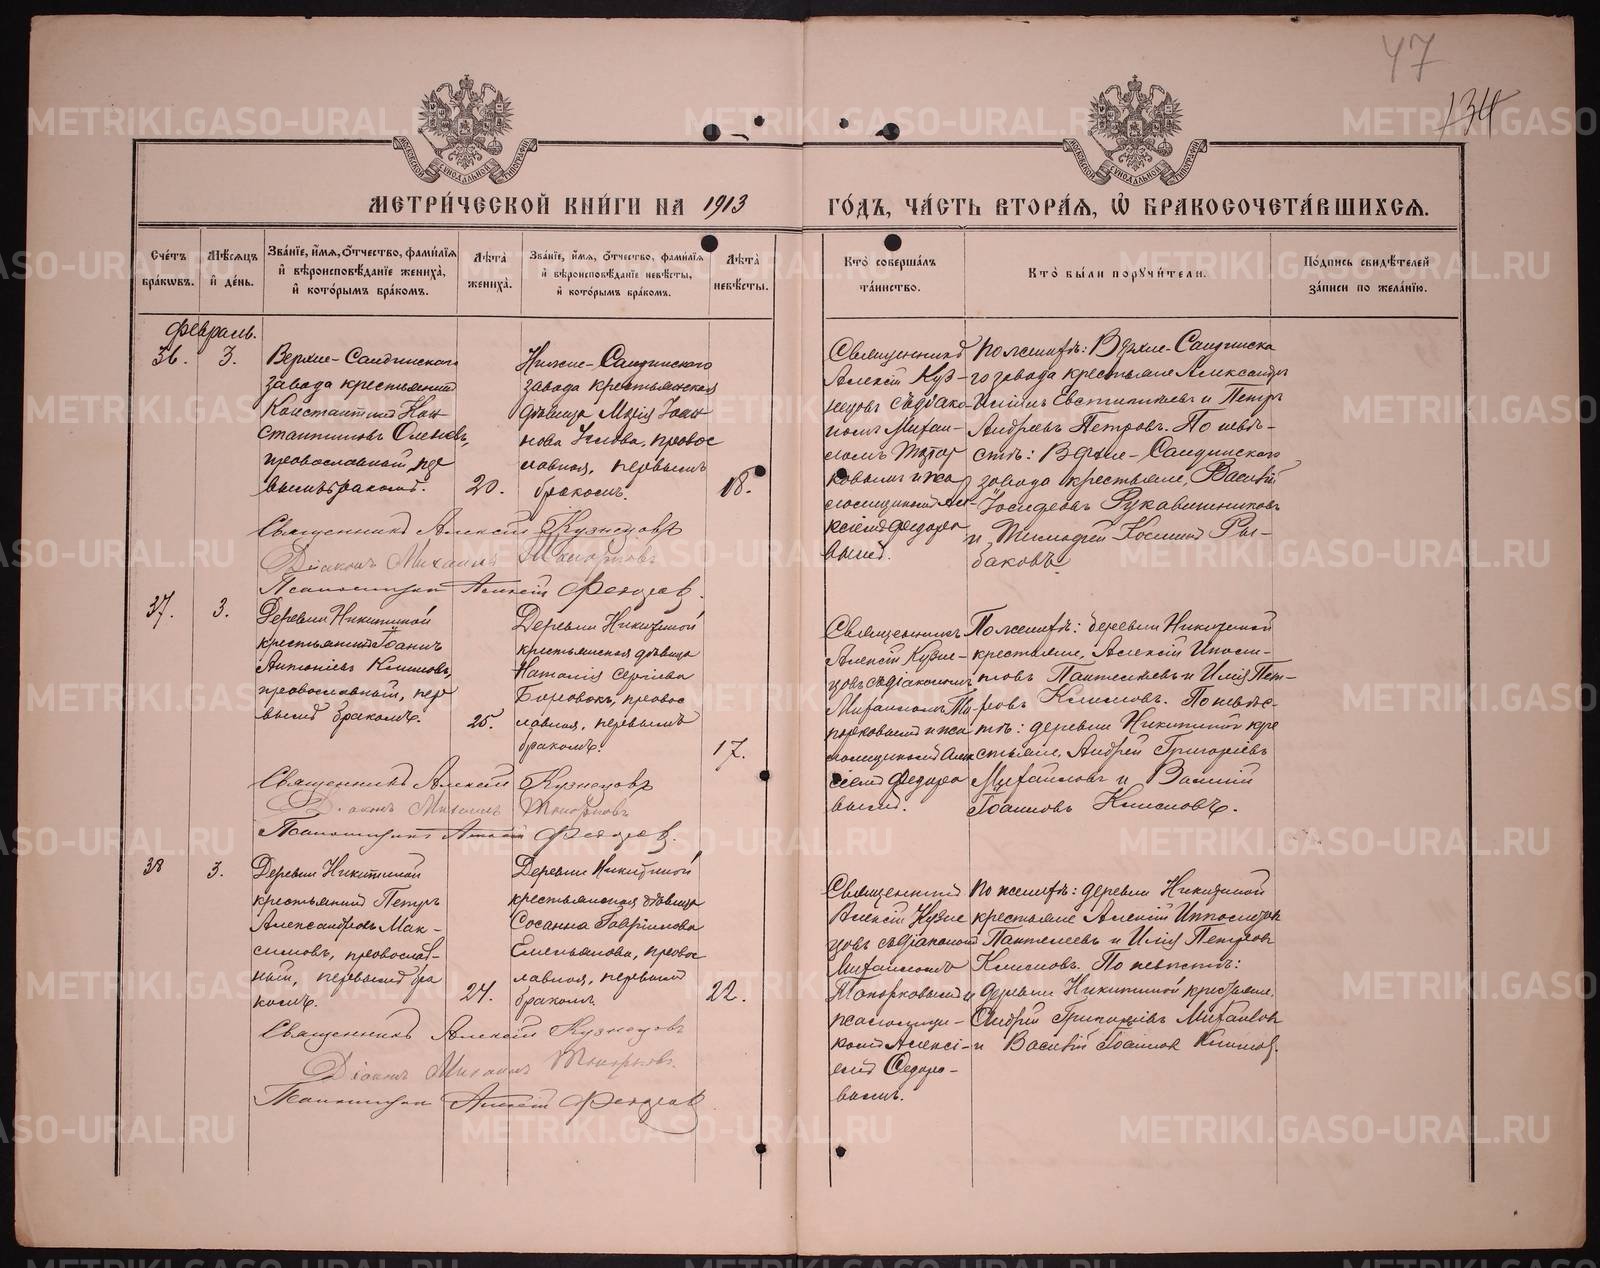 47
134
МОСКОВСКОЙ СѴНОДАЛЬНОЙ ТИПОГРАФІИ
МОСКОВСКОЙ СѴНОДАЛЬНОЙ ТИПОГРАФІИ
МЕТРИ́ЧЕСКОЙ КНИ́ГИ НА 1913 ГО́ДЪ, ЧА́СТЬ ВТОРА́Я, Ѡ҆ БРАКОСОЧЕТА́ВШИХСЯ.
Сче́тъ бра́кѡвъ.
Мѣ́сяцъ и҆ де́нь.
Зва́нїе, и҆́мя, ѻ҆́тчество, фами́лїя и҆ вѣроисповѣ́данїе жениха̀, и҆ кото́рымъ бра́комъ.
Лѣ́та жениха̀.
Зва́нїе, и҆́мя, ѻ҆́тчество, фами́лїя и҆ вѣроисповѣ́данїе невѣ́сты, и҆ кото́рымъ бра́комъ.
Лѣ́та невѣ́сты.
Кто̀ соверша́лъ та́инство.
Кто̀ бы́ли поручи́тели.
По́дпись свидѣ́телей за́писи по жела́нїю.
Февраль.
36.
3.
Верхне-Салдинскаго
завода крестьянинъ
Константинъ Кон
стантиновъ
православный, пер
вымъ бракомъ.
20.
Нижне-Салдинскаго
завода крестьянская
дѣвица Марія Іоан
нова православ
лавная, первымъ
бракомъ.
18.
Священникъ
Алексій Куз-
нецовъ съ діако
номъ Михаи-
ломъ Топор
ковымъ и пса
ломщикомъ Але
ксіемъ Федоро
вымъ.
По женихѣ: Верхне-Салдинска
го завода крестьяне Александръ
Евстигнѣевъ и Петръ
Андреевъ Петровъ. По невѣ-
стѣ: Верхне-Салдинскаго
завода крестьяне, Василій
Іосифовъ Рукавишниковъ
и Тимофей Косминъ Ры-
баковъ.
Священникъ Алексій Кузнецовъ
Діаконъ Михаилъ Топорковъ
Псаломщикъ Алексій Федоровъ.
37.
3.
Деревни Никитиной
крестьянинъ Іоаннъ
Антоніевъ Климовъ,
православный, пер
вымъ бракомъ.
25.
Деревни Никитиной
крестьянская дѣвица
Наталія Сергіева
православ
лавная, первымъ
бракомъ.
17.
Священникъ
Алексій Кузне-
цовъ съ діакономъ
Михаиломъ То-
порковымъ и пса
ломщикомъ Алек
сіемъ Федоро
вымъ.
По женихѣ: деревни Никитиной
крестьяне, Алексій Ипполи-
товъ Пантелѣевъ и Илія Пет-
ровъ Климовъ. По невѣс-
тѣ: деревни Никитиной кре
стьяне, Андрей Григоріевъ
Михайловъ и Василій
Іоанновъ Климовъ.
Священникъ Алексій Кузнецовъ
Діаконъ Михаилъ Топорковъ
Псаломщикъ Алексій Федоровъ.
38
3.
Деревни Никитиной
крестьянинъ Петръ
Александровъ Мак-
симовъ, православ-
ный, первымъ бра
комъ.
24.
Деревни Никитиной
крестьянская дѣвица
Сосанна Гавріилова
Емельянова, правос
лавная, первымъ
бракомъ.
22.
Священникъ
Алексій Кузне
цовъ съ діакономъ
Михаиломъ
Топорковымъ и
псаломщи-
комъ Алексі-
емъ Федоро-
вымъ.
По женихѣ: деревни Никитиной
крестьяне Алексій Ипполитовъ
Пантелеевъ и Илія Петровъ
Климовъ. По невѣстѣ:
деревни Никитиной крестьяне,
Андрей Григоріевъ Михайловъ
и Василій Іоанновъ Климовъ.
Священникъ Алексій Кузнецовъ
Діаконъ Михаилъ Топорковъ.
Псаломщикъ Алексій Федоровъ
METRIKI.GASO-URAL.RU